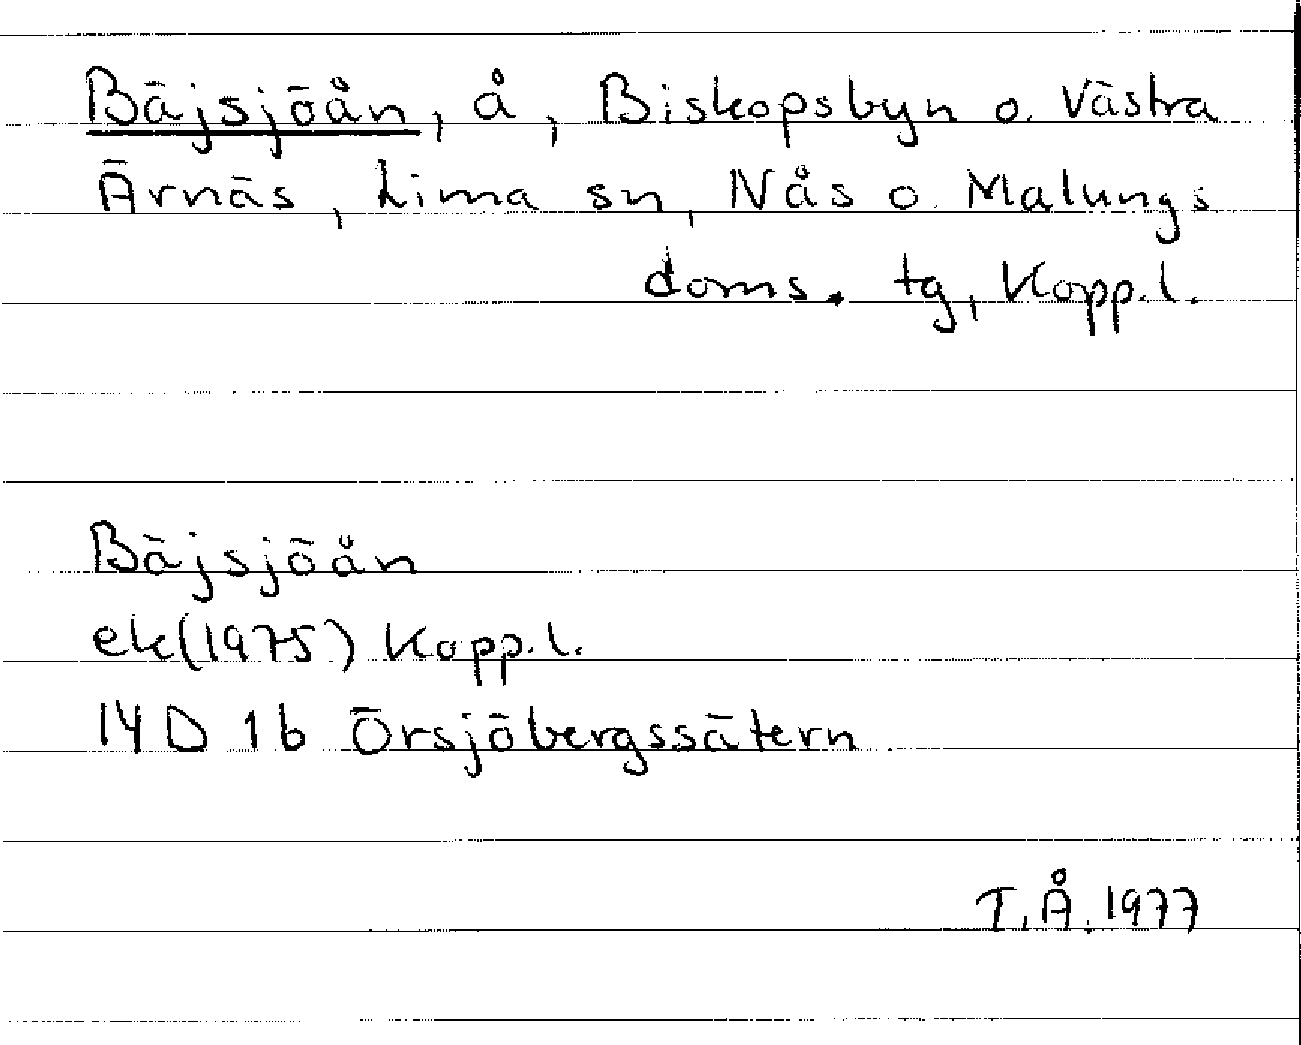 Bäjsjöån, å, Biskopsbyn o. Västra
Ärnäs, Lima sn, Nås o. Malungs
doms. tg, Kopp.l.
Bäjsjöån
ek(1975) Kopp.l.
14 D 1b Örsjöbergssätern
T.Å. 1977